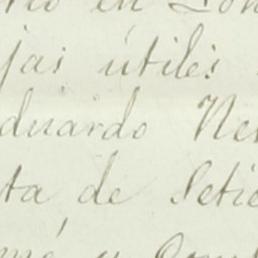 en
jas útiles
duardo Ne
ta de Seti
mé y